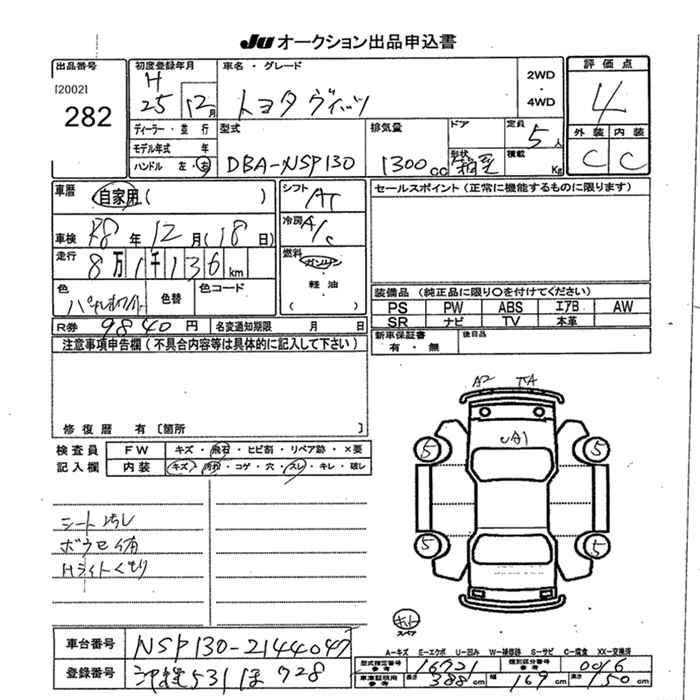 JU オークション出品申込書
出品番号
[2002]
282
初度登録年月
H
25 12月
ディーラー・並行
モデル年式 年
ハンドル 左・右
車名・グレード
トヨタ ヴィッツ
2WD
・
4WD
型式
DBA-NSP130
排気量
1300cc
ドア
形状
箱型
定員
5人
積載
Kg
評価点
4
外装 内装
C C
車歴
自家用( )
車検 R8年12月(18日)
走行
8万1千136km
色
色替
色コード
シフト
AT
冷房
A/C
燃料
ガソリン
・
軽油
( )
セールスポイント(正常に機能するものに限ります)
装備品(純正品に限り○を付けてください)
PS PW ABS エアB AW
SR ナビ TV 本革
新車保証書
有・無
後日品
R券 9840円 名変通知期限 月 日
注意事項申告欄(不具合内容等は具体的に記入して下さい)
修復歴 有〔箇所 〕
検査員
記入欄
FW キズ・飛石・ヒビ割・リペア跡・×要
内装 キズ・汚れ・コゲ・穴・スレ・キレ・破レ
シート汚レ
Hライトくもり
A2
UA1
5 5
5 5
スペア
A-キズ E-エクボ U-凹み W-補修跡 S-サビ C-腐食 XX-交換済
車台番号 NSP130-2144047
登録番号 沖縄531ほ728
型式指定番号 参考 16721 類別区分番号 参考 0016
車庫証明用 参考 長さ 388cm 幅 169cm 高さ 150cm